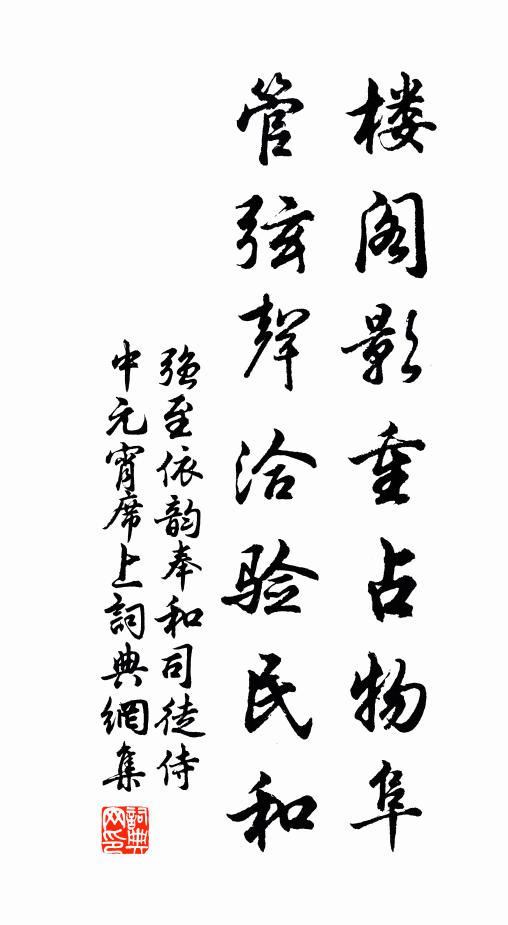 楼阁影重占物阜
管弦聲洽验民和
强至依韵奉和司徒侍
中元宵席上詞典網集
詞典
网印